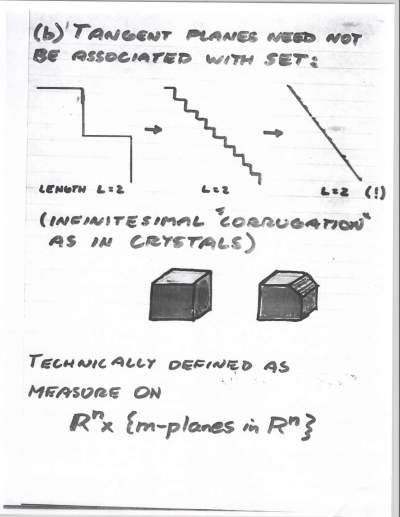 (b)' TANGENT PLANES NEED NOT
BE ASSOCIATED WITH SET:
LENGTH L=2
L=2
L=2 (!)
(INFINITESIMAL "CORRUGATION"
AS IN CRYSTALS)
TECHNICALLY DEFINED AS
MEASURE ON
Rⁿ x {m-planes in Rⁿ}